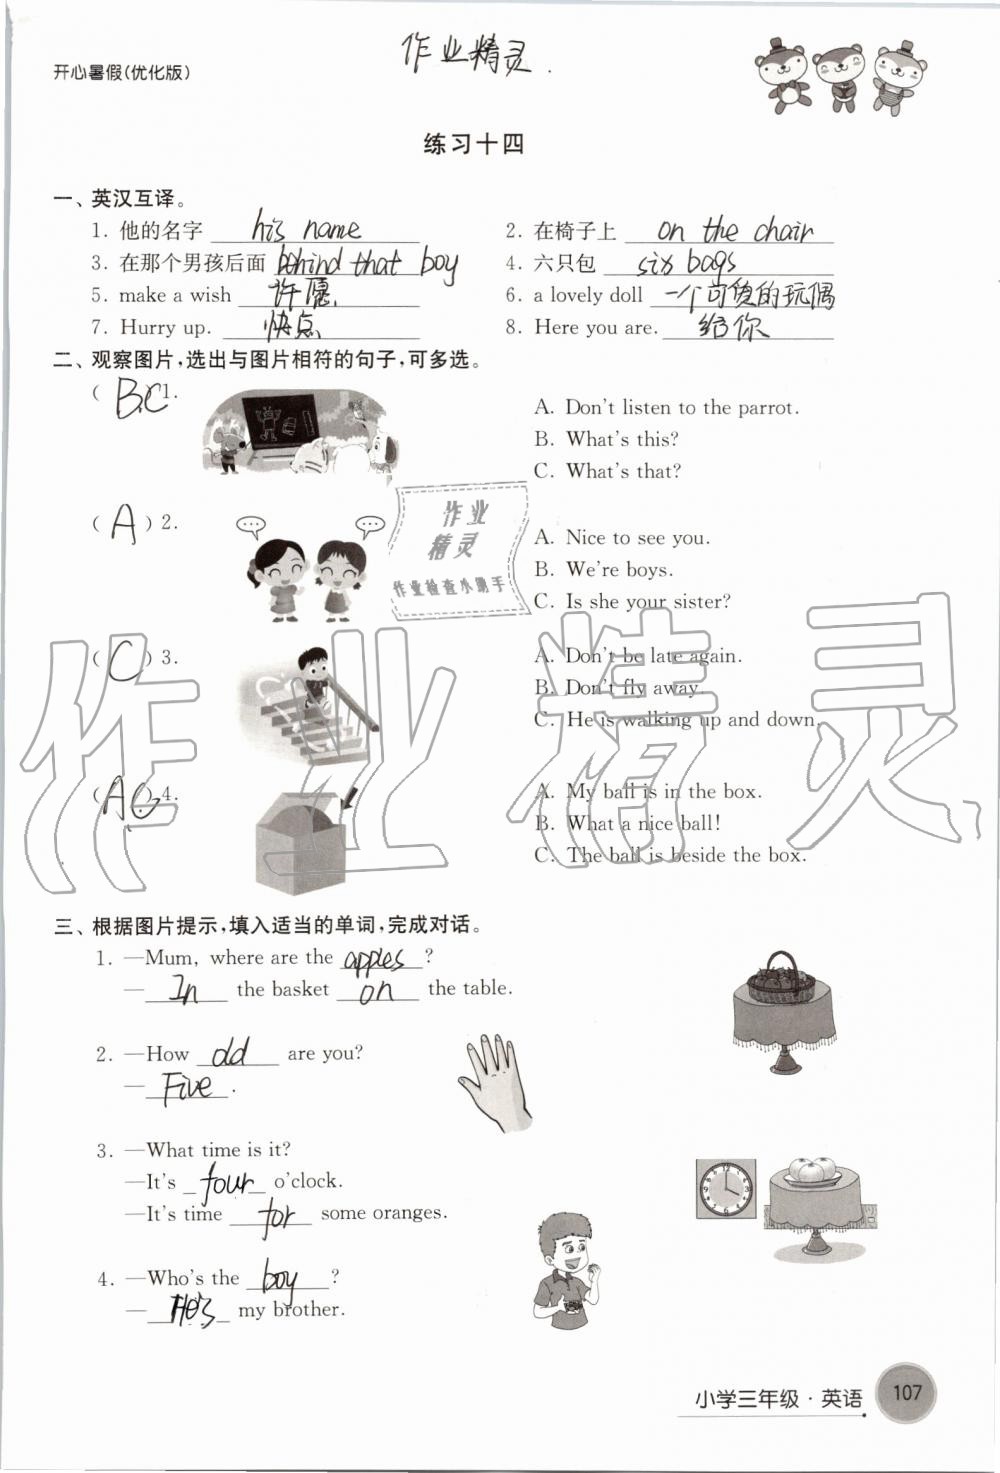 开心暑假(优化版)
作业精灵.
练习十四
一、英汉互译。
1. 他的名字 his name 2. 在椅子上 on the chair
3. 在那个男孩后面 behind that boy 4. 六只包 six bags
5. make a wish 许愿 6. a lovely doll 一个可爱的玩偶
7. Hurry up. 快点 8. Here you are. 给你
二、观察图片,选出与图片相符的句子,可多选。
( BC ) 1.
A. Don't listen to the parrot.
B. What's this?
C. What's that?
( A ) 2.
A. Nice to see you.
B. We're boys.
C. Is she your sister?
作业
精灵
作业检查小助手
( C ) 3.
A. Don't be late again.
B. Don't fly away.
C. He is walking up and down.
( AC ) 4.
A. My ball is in the box.
B. What a nice ball!
C. The ball is beside the box.
作业精灵
三、根据图片提示,填入适当的单词,完成对话。
1. —Mum, where are the apples ?
— In the basket on the table.
2. —How old are you?
— Five .
3. —What time is it?
—It's four o'clock.
—It's time for some oranges.
4. —Who's the boy ?
— He's my brother.
小学三年级·英语 107